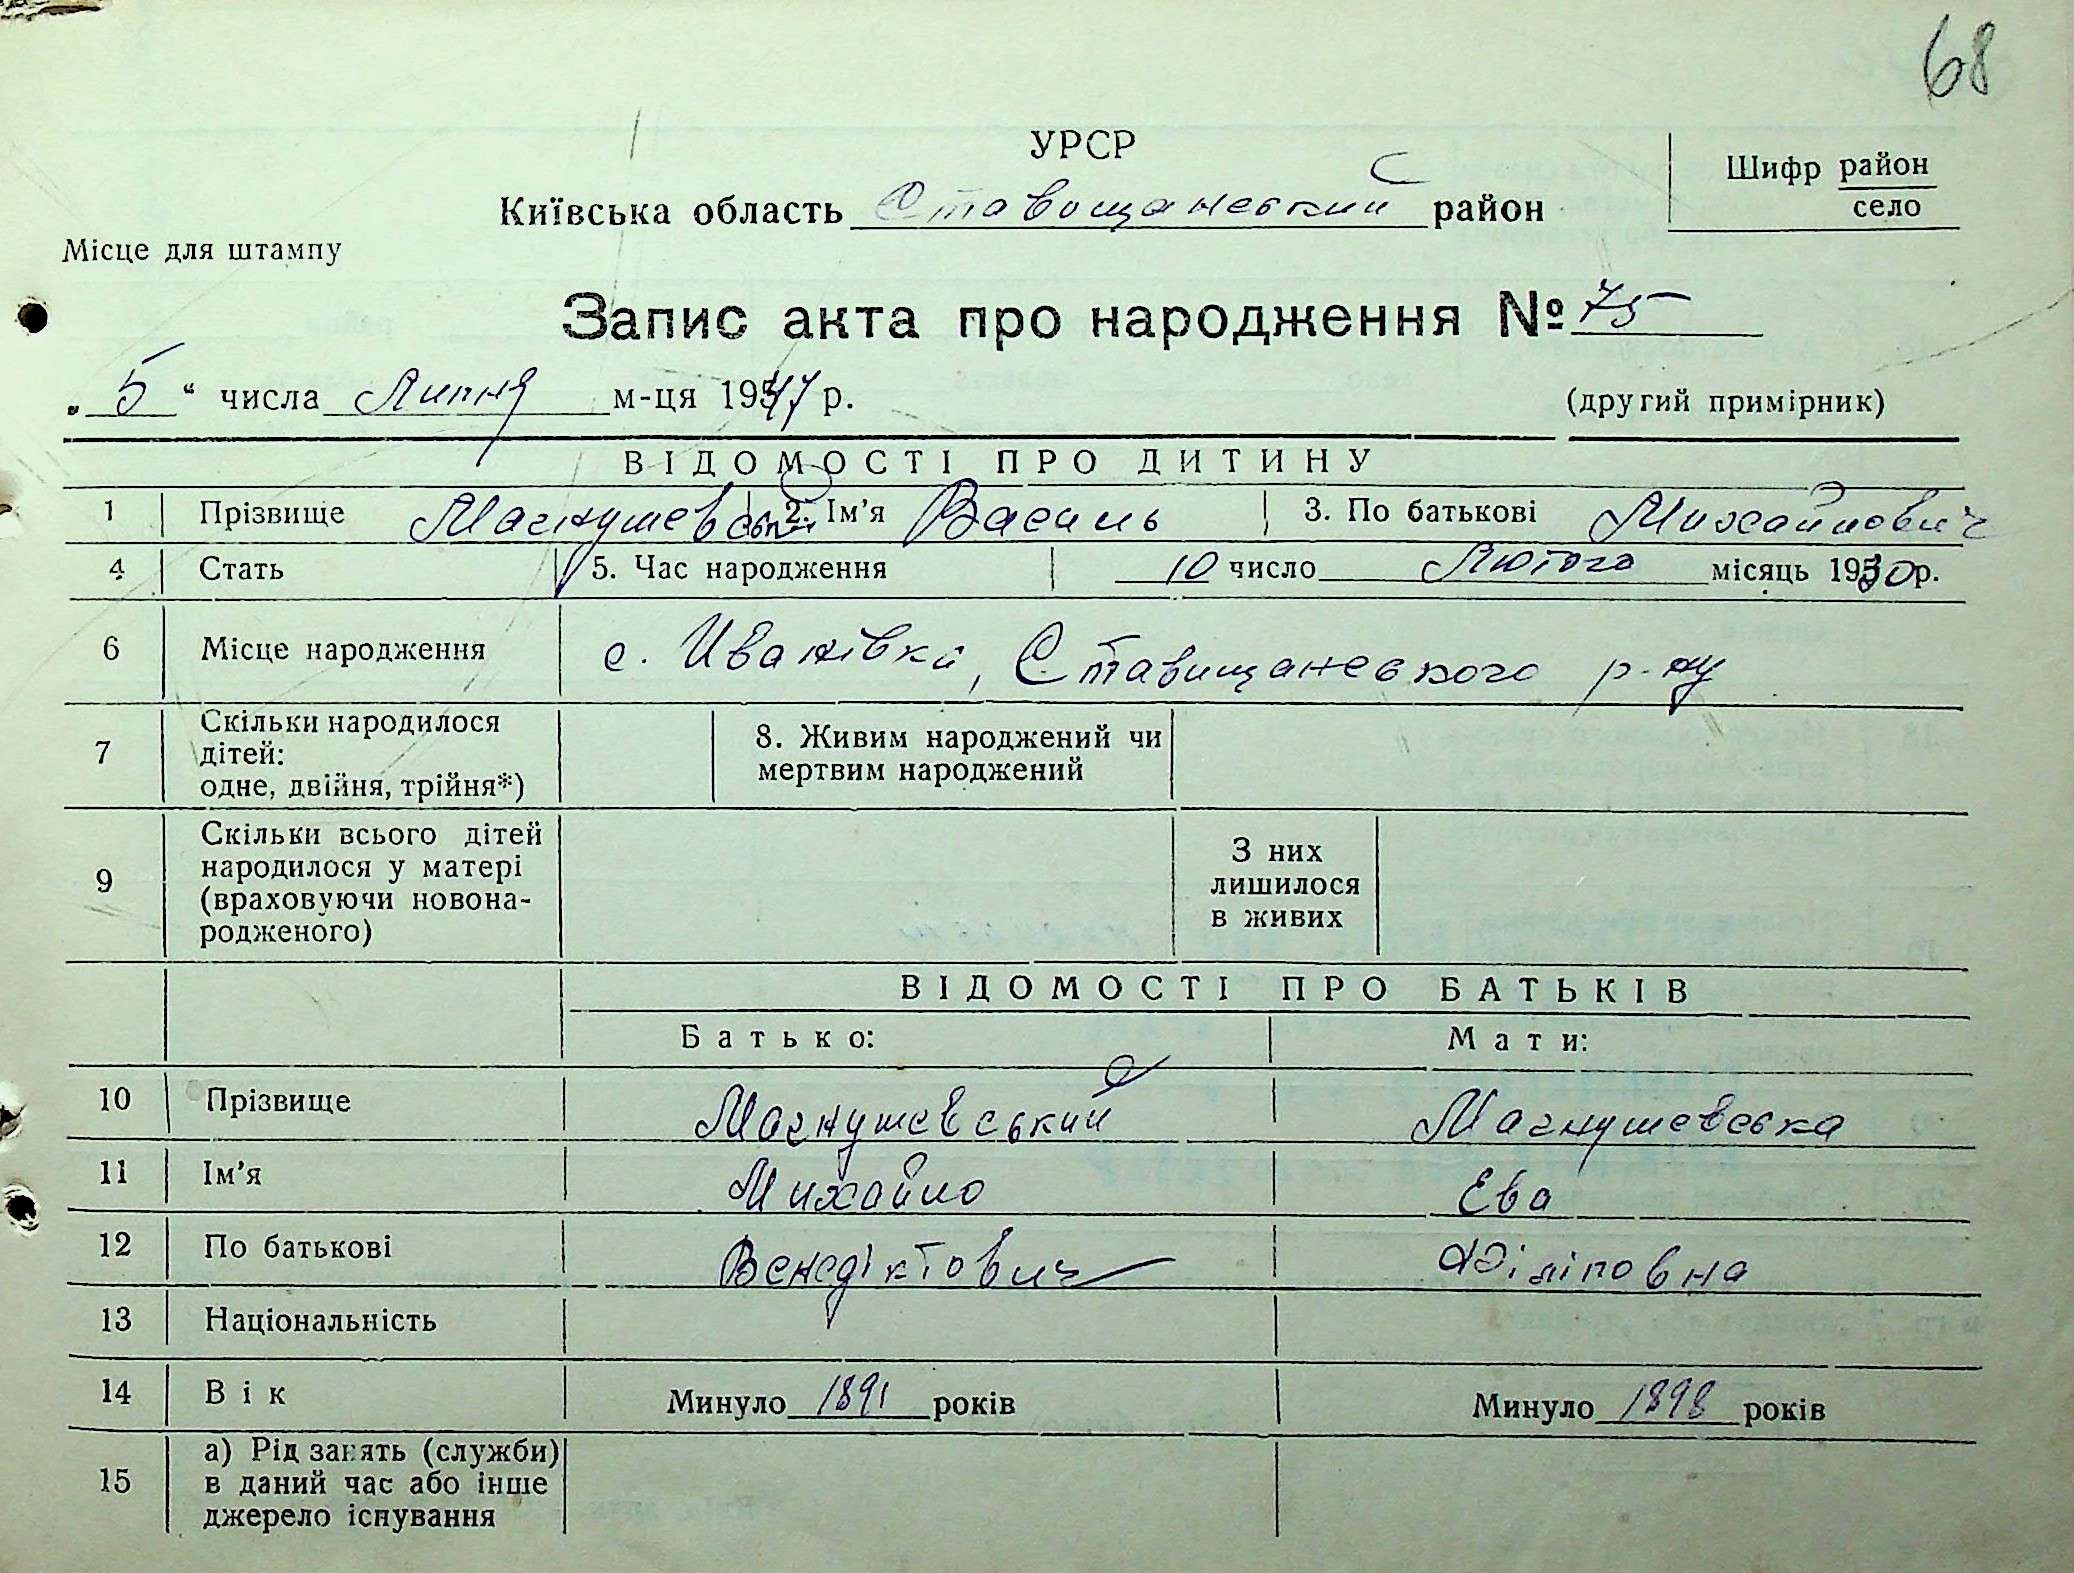 68
УРСР
Київська область Ставищанський район
Шифр район
село
Місце для штампу
Запис акта про народження № 75
„ 5 “ числа Липня м-ця 1947 р. (другий примірник)
ВІДОМОСТІ ПРО ДИТИНУ
1 Прізвище Магнушевський 2. Ім’я Василь 3. По батькові Михайлович
4 Стать 5. Час народження 10 число Лютого місяць 1930р.
6 Місце народження с. Иванівка, Ставищанського р-ну
7 Скільки народилося
дітей:
одне, двійня, трійня*)
8. Живим народжений чи
мертвим народжений
9 Скільки всього дітей
народилося у матері
(враховуючи новона-
родженого)
З них
лишилося
в живих
ВІДОМОСТІ ПРО БАТЬКІВ
Батько: Мати:
10 Прізвище Магнушевський Магнушевська
11 Ім’я Михайло Ева
12 По батькові Венедіктович Філіповна
13 Національність
14 Вік Минуло 1891 років Минуло 1898 років
15 а) Рід занять (служби)
в даний час або інше
джерело існування